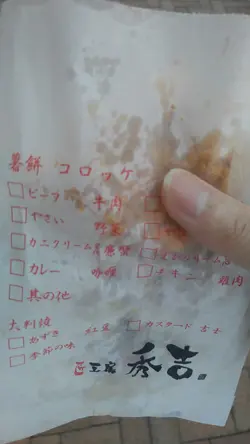 薯餅 コロッケ
ビーフ 牛肉
やさい 野菜
カニクリーム
カレー 咖哩
チキン 雞肉
其の他
大判焼
あずき 紅豆
カスタード
季節の味
工房 秀吉